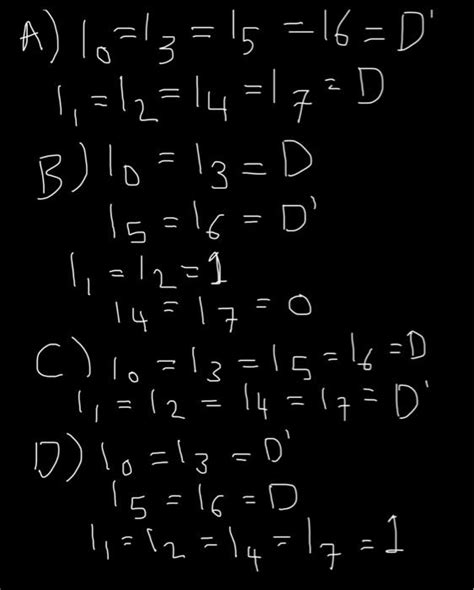 A) I₀ = I₃ = I₅ = I6 = D'
I₁ = I₂ = I₄ = I₇ = D
B) I₀ = I₃ = D
I₅ = I₆ = D'
I₁ = I₂ = 1
I₄ = I₇ = 0
C) I₀ = I₃ = I₅ = I₆ = D
I₁ = I₂ = I₄ = I₇ = D'
D) I₀ = I₃ = D'
I₅ = I₆ = D
I₁ = I₂ = I₄ = I₇ = 1